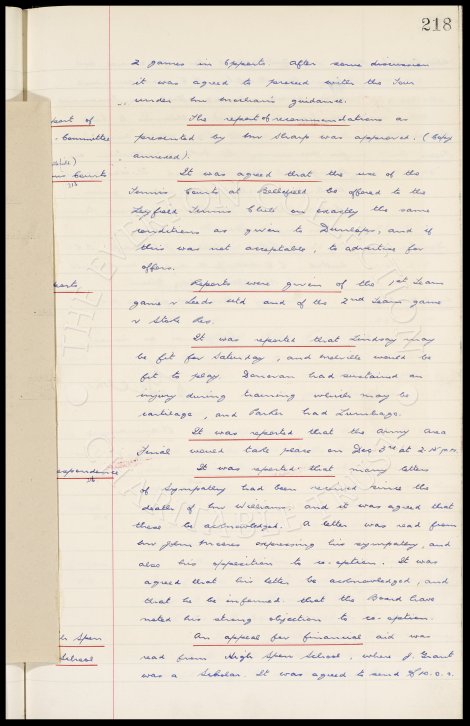 218
2 games in Epports after some discussion
it was agreed to proceed with the Tour
under Mr Mechan's guidance.
The report of recommendations as
presented by Mr Sharp was approved. (Copy
annexed).
port of
Committee
It was agreed that the use of the
Courts
Tennis Courts at Bellefield be offered to the
Leyfield Tennis Club on exactly the same
conditions as given to Dunlops, and if
this was not acceptable, to advertise for
offers.
ports.
Reports were given of the 1st Team
game v Leeds Utd and of the 2nd Team game
v Stoke Res.
It was reported that Lindsay may
be fit for Saturday, and Melville would be
fit to play. Donovan had sustained an
injury during training which may be
cartilage, and Parker had Lumbago.
It was reported that the Army Area
Final would take place on Dec 3rd at 2.15 p.m.
espondence
It was reported that many letters
of sympathy had been received since the
death of Mr Williams, and it was agreed that
these be acknowledged. A letter was read from
Mr John Moores expressing his sympathy, and
also his opposition to co-option. It was
agreed that his letter be acknowledged, and
that he be informed that the Board have
noted his strong objections to co-option.
gh Spen
School
An appeal for financial aid was
read from High Spen School, where J. Grant
was a Scholar. It was agreed to send £10.0.0.